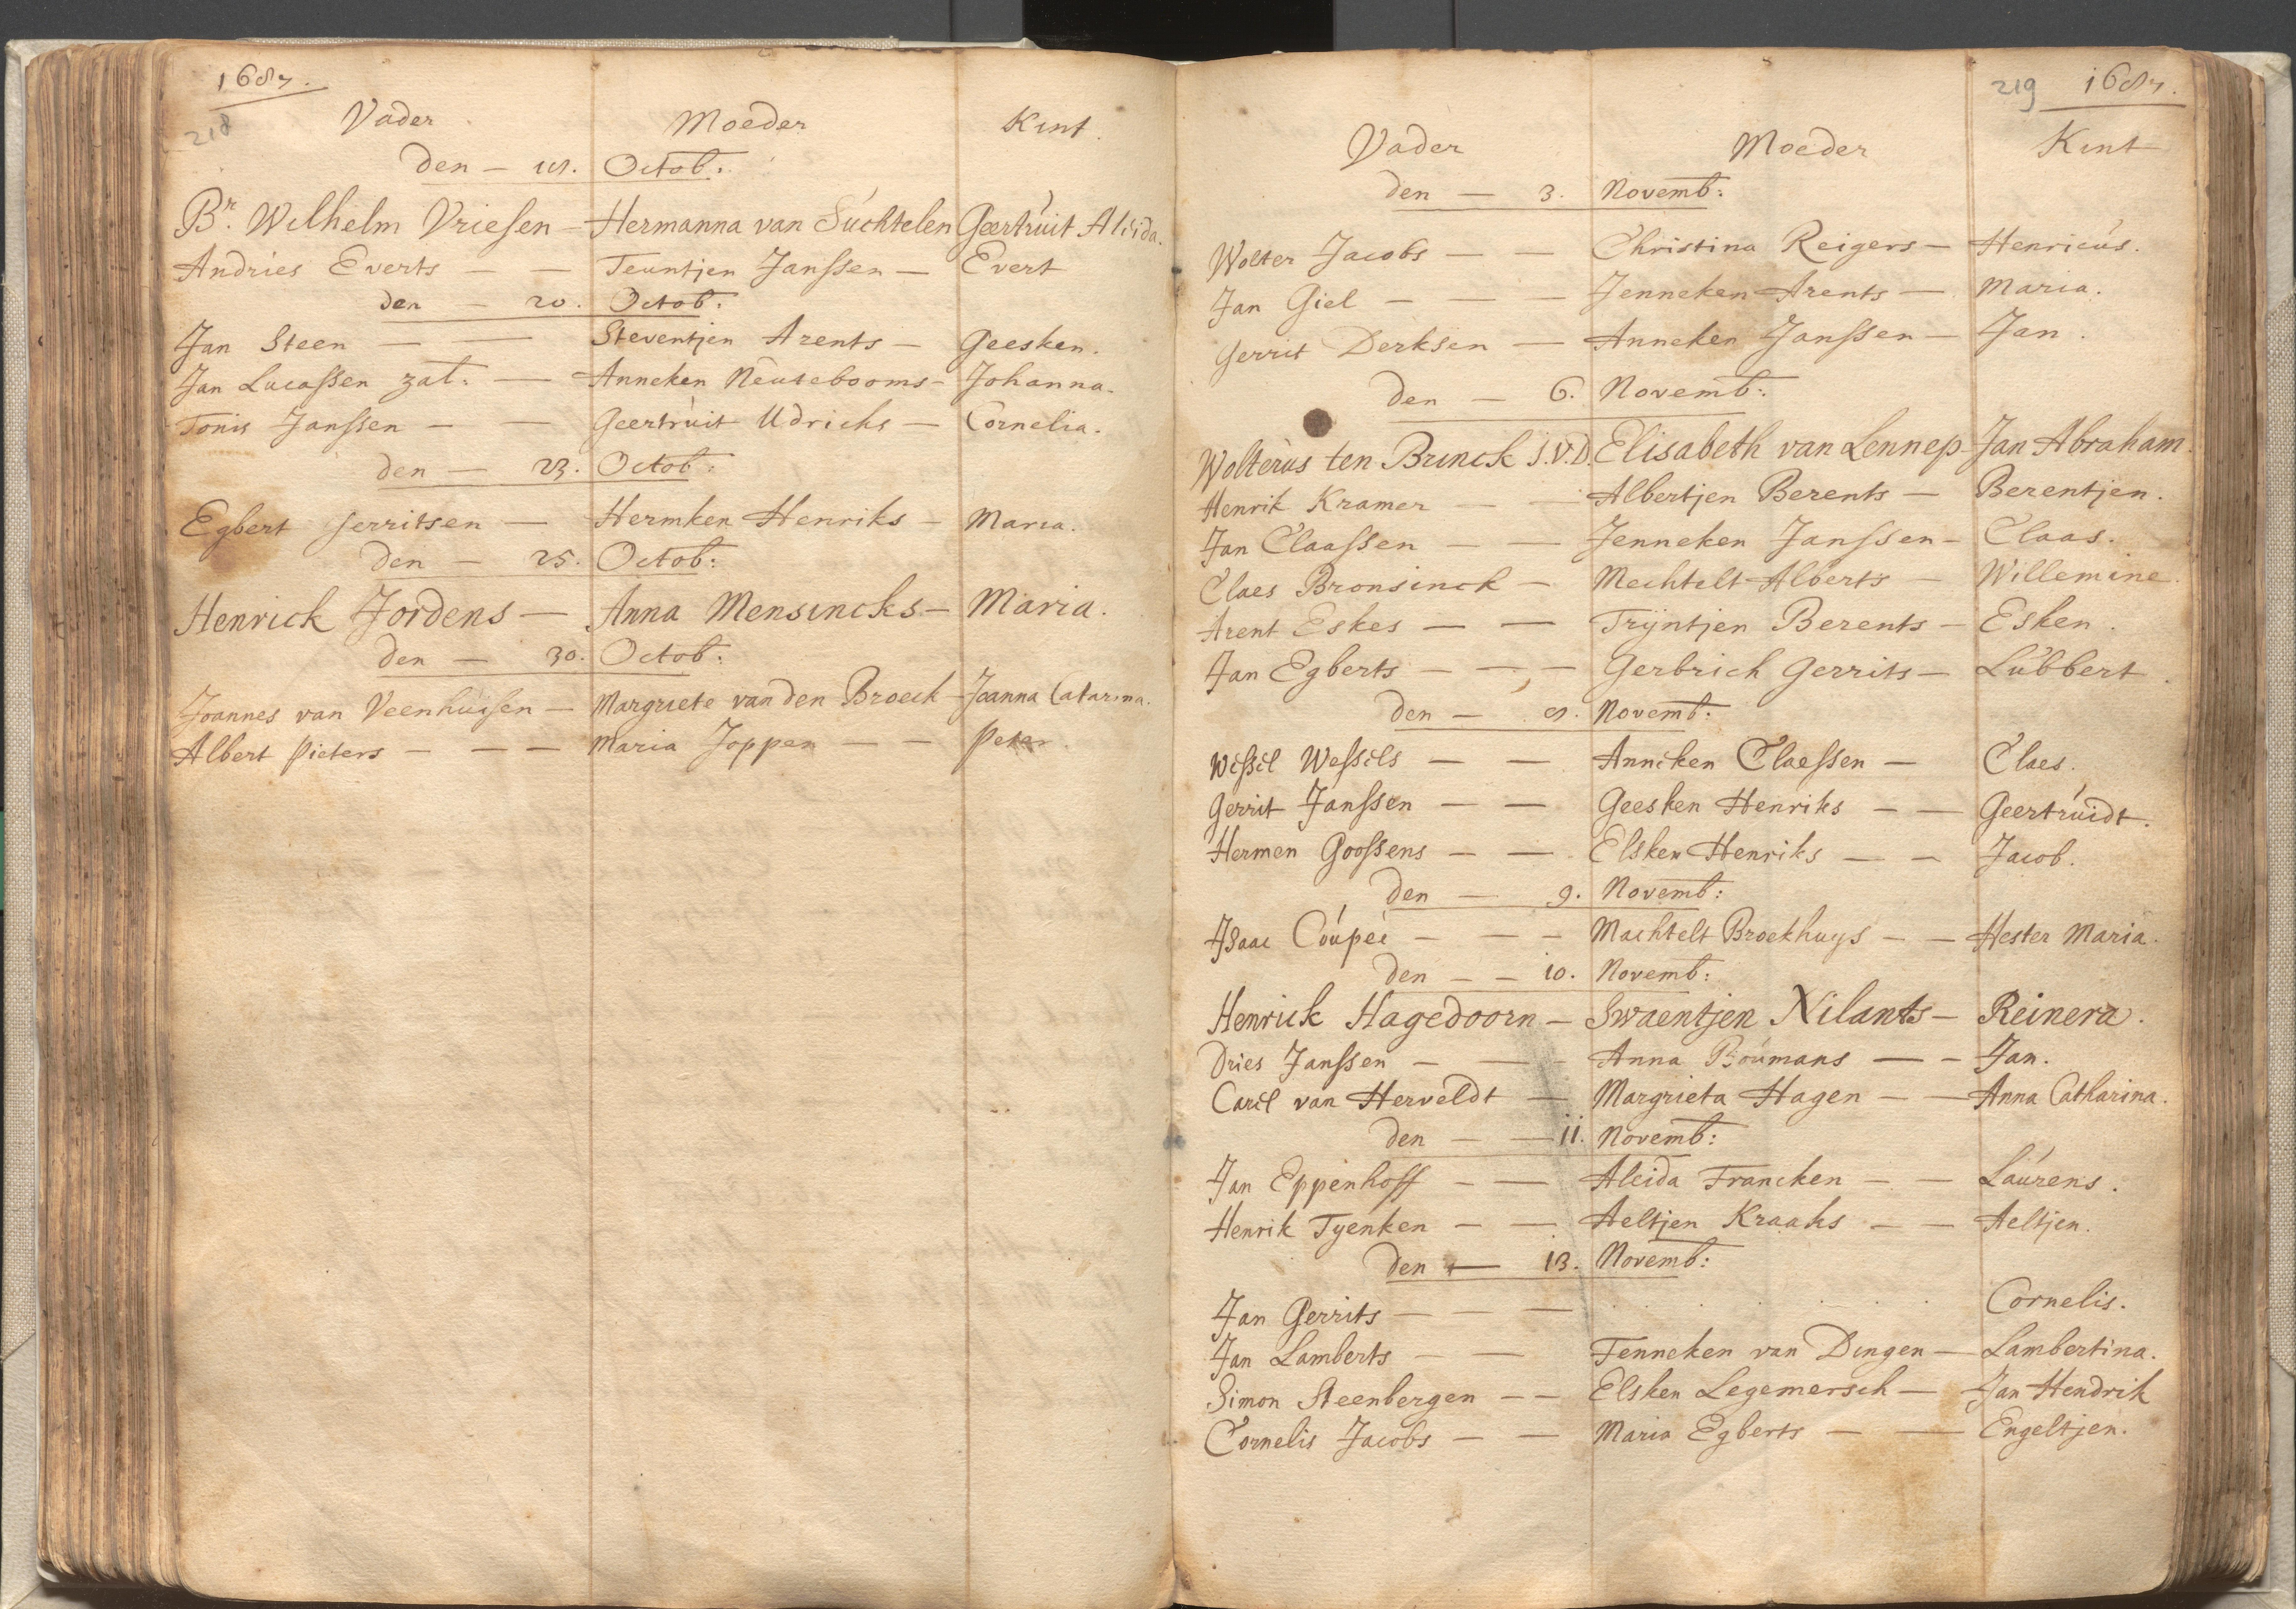 1687.
218
Vader Moeder Kint.
den — 18. Octob:
Br. Wilhelm Vriesen — Hermanna van Suchtelen Geertruit Aleida.
Andries Everts — — Teuntjen Janssen — Evert
den — 20. Octob:
Jan Steen — — Steventjen Arents — Geesken.
Jan Lucassen zal: — Anneken Neutebooms — Johanna.
Tonis Janssen — — Geertruit Udrichs — Cornelia.
den — 23. Octob:
Egbert Gerritsen — Hermken Henriks — Maria.
den — 25. Octob:
Henrick Jordens — Anna Mensincks — Maria.
den — 30. Octob:
Joannes van Veenhuisen — Margriete van den Broeck — Joanna Catarina.
Albert Pieters — — — Maria Joppen — — Peter.
219 1687.
Vader Moeder Kint
den — 3. Novemb:
Wolter Jacobs — — Christina Reigers — Henricus.
Jan Giel — — — Jenneken Arents — Maria.
Gerrit Derksen — Anneken Janssen — Jan.
den — 6. Novemb:
Wolterus ten Brinck J.V.D. Elisabeth van Lennep — Jan Abraham.
Henrik Kramer — — Albertjen Berents — Berentjen.
Jan Claassen — — Jenneken Janssen — Claas.
Claes Bronsinck — Mechtelt Alberts — Willemine.
Arent Eskes — — Trijntjen Berents — Esken.
Jan Egberts — — — Gerbrich Gerrits — Lubbert.
den — 8. Novemb:
Wessel Wessels — — Anneken Claessen — Claes.
Gerrit Janssen — — Geesken Henriks — — Geertruidt.
Hermen Goossens — — Elsken Henriks — — Jacob.
den — 9. Novemb:
Isaac Coupeé — — — Machtelt Broekhuys — — Hester Maria.
den — — 10. Novemb:
Henrick Hagedoorn — Swaentjen Nilants — Reinera.
Dries Janssen — — Anna Boumans — — Jan.
Carel van Herveldt — Margrieta Hagen — — Anna Catharina.
den — — 11. Novemb:
Jan Eppenhoff — — Aleida Francken — — Laurens.
Henrik Tyenken — — Aeltjen Kraaks — — Aeltjen.
den — 13. Novemb:
Jan Gerrits — — — . . . . . Cornelis.
Jan Lamberts — — Fenneken van Dingen — Lambertina.
Simon Steenbergen — — Elsken Legemersch — Jan Hendrik
Cornelis Jacobs — — Maria Egberts — — Engeltjen.